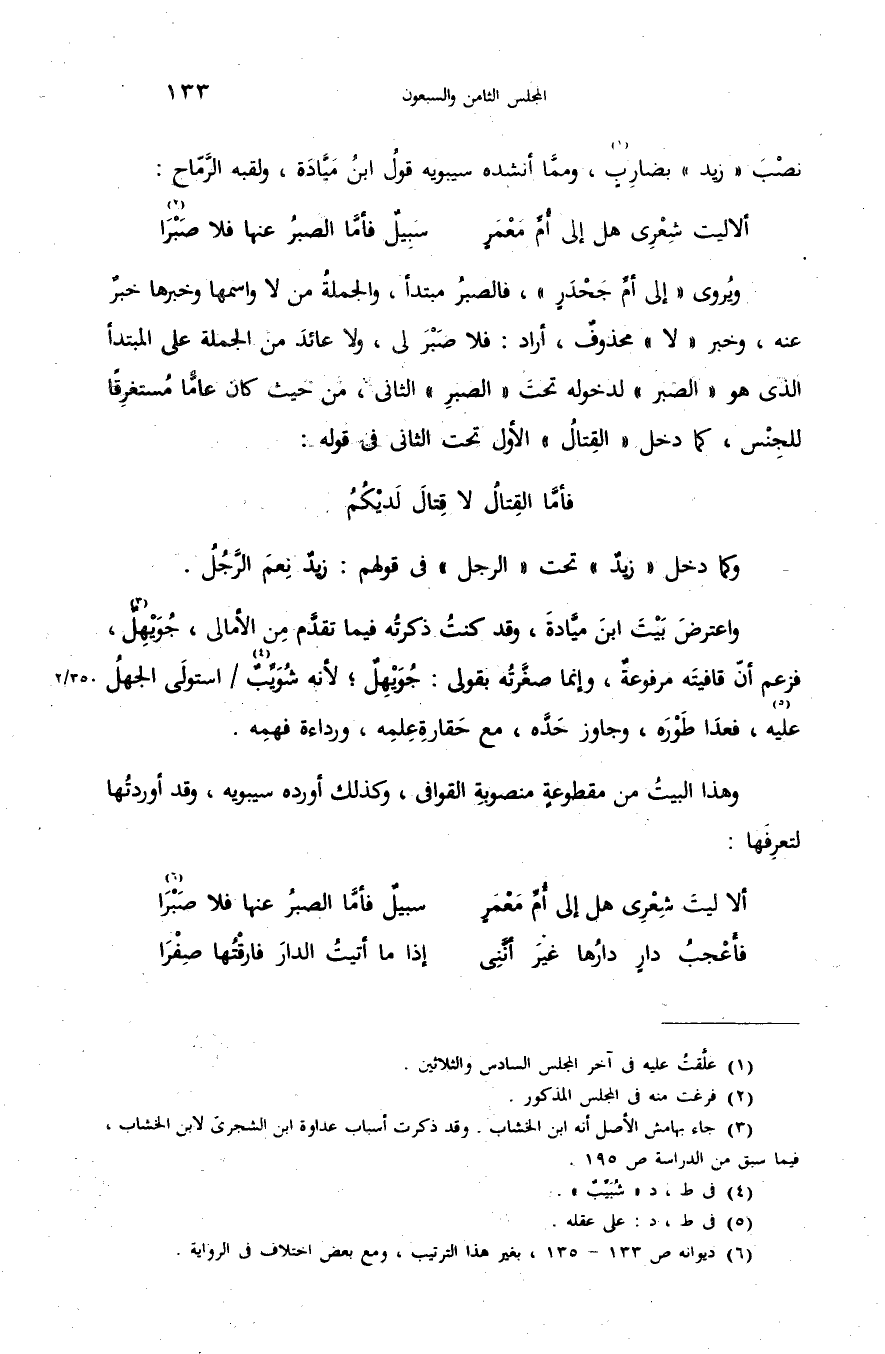 المجلس الثامن والسبعون ١٣٣
نصْبَ « زيد » بضاربٍ(١) ، وممَّا أنشده سيبويه قولُ ابنُ مَيَّادَة ، ولقبه الرَّمّاح :
ألاليت شِعْرِى هل إلى أُمِّ مَعْمَرٍ سَبِيلٌ فأمَّا الصبرُ عنها فلا صَبْرَا(٢)
ويُروى « إلى أمِّ جَحْدَرٍ » ، فالصبرُ مبتدأ ، والجملةُ من لا واسمها وخبرها خبرٌ
عنه ، وخبر « لا » محذوفٌ ، أراد : فلا صَبْرَ لى ، ولا عائدَ من الجملة على المبتدأ
الذى هو « الصبر » لدخوله تحتَ « الصبرِ » الثانى ، من حيث كان عامًّا مُستغرِقًا
للجِنْس ، كما دخل « القِتالُ » الأول تحت الثانى فى قوله :
فأمَّا القِتالُ لا قِتالَ لَديْكُمُ
وكما دخل « زيدٌ » تحت « الرجل » فى قولهم : زيدٌ نِعمَ الرَّجُلُ .
واعترضَ بَيْتَ ابنَ ميَّادةَ ، وقد كنتُ ذكرتُه فيما تقدَّم مِن الأمالى ، جُوَيْهِلٌ(٣) ،
فزعم أنّ قافيتَه مرفوعةٌ ، وإنما صغَّرتُه بقولى : جُوَيْهِلٌ ؛ لأنه شُوَيِّبٌ(٤) / استولَى الجهلُ ٢/٣٥٠
عليه(٥) ، فعدَا طَوْرَه ، وجاوز حَدَّه ، مع حَقارةِعِلمِه ، ورداءة فهمِه .
وهذا البيتُ من مقطوعةٍ منصوبةِ القوافى ، وكذلك أورده سيبويه ، وقد أوردتُها
لتعرِفَها :
ألا ليتَ شِعْرِى هل إلى أُمِّ مَعْمَرٍ سبيلٌ فأمَّا الصبرُ عنها فلا صَبْرَا(٦)
فأَعْجبُ دارٍ دارُها غيرَ أنَّنِى إذا ما أتيتُ الدارَ فارقْتُها صِفْرَا
(١) علَّقتُ عليه فى آخر المجلس السادس والثلاثين .
(٢) فرغت منه فى المجلس المذكور .
(٣) جاء بهامش الأصل أنه ابن الخشاب . وقد ذكرت أسباب عداوة ابن الشجرىّ لابن الخشاب ،
فيما سبق من الدراسة ص ١٩٥ .
(٤) فى ط ، د « شُبَيِّبٌ » .
(٥) فى ط ، د : على عقله .
(٦) ديوانه ص ١٣٣ – ١٣٥ ، بغير هذا الترتيب ، ومع بعض اختلاف فى الرواية .